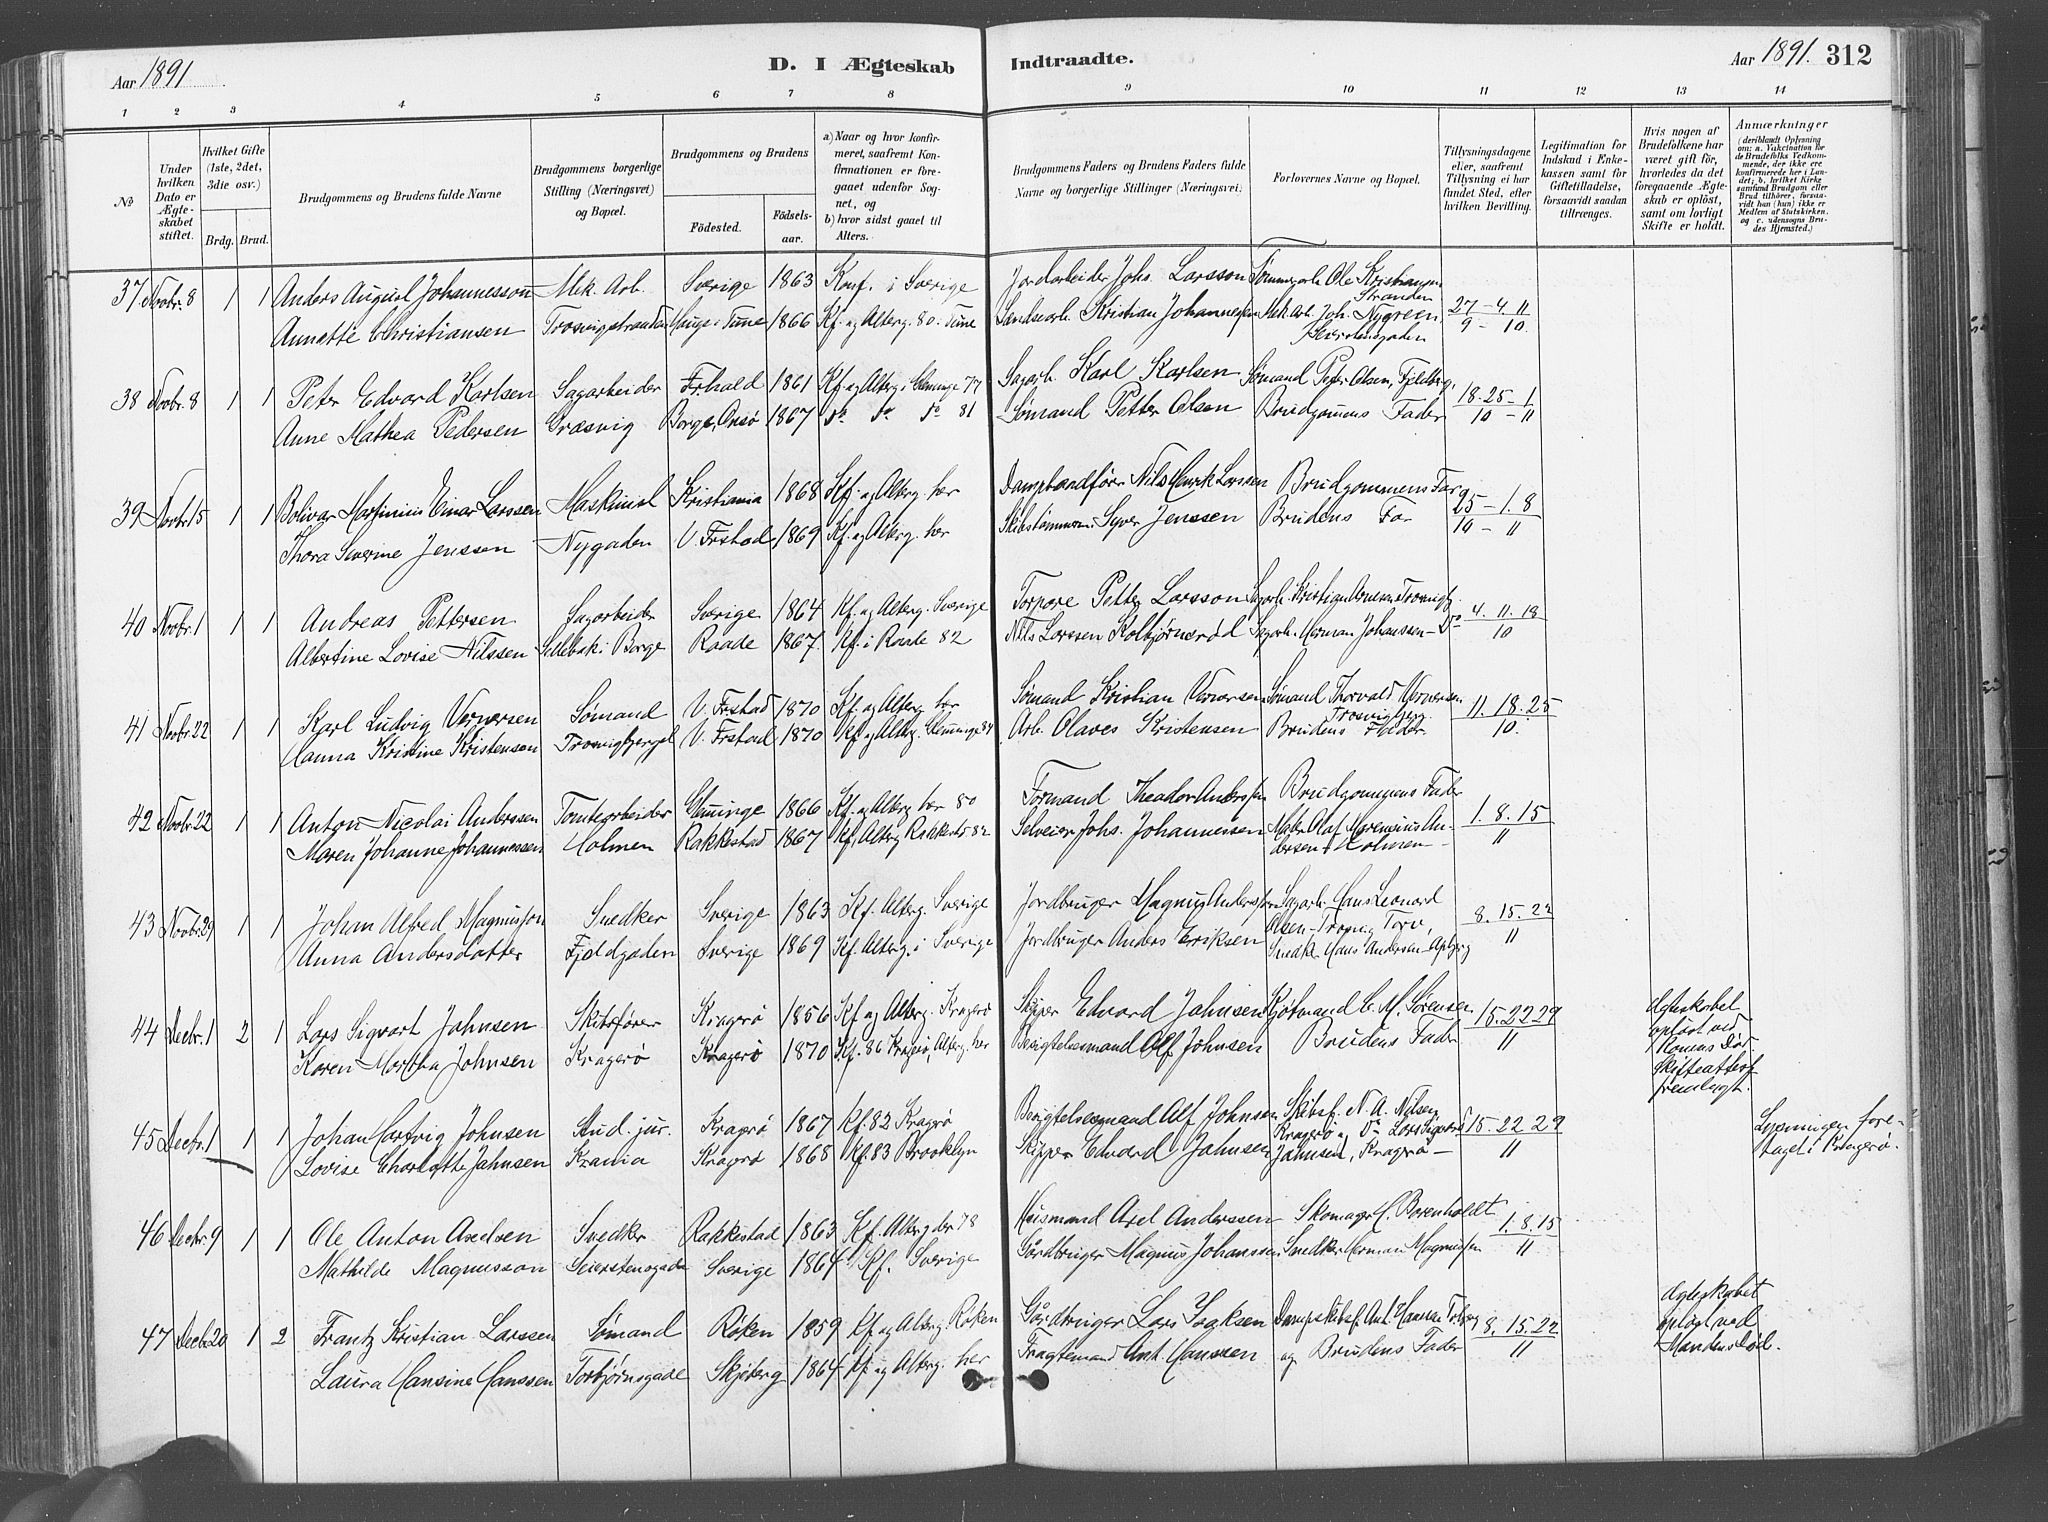 Aar 1891
D. I Ægteskab
Indtraadte.
Aar 1891. 312
1 2 3 4 5 6 7 8 9 10 11 12 13 14
No
Under hvilken Dato er Ægteskabet stiftet.
Hvilket Gifte (1ste, 2det, 3die osv.)
Brdg. Brud.
Brudgommens og Brudens fulde Navne
Brudgommens borgerlige Stilling (Næringsvei) og Bopæl.
Brudgommens og Brudens
Födested.
Födsels-aar.
a) Naar og hvor konfirmeret, saafremt Konfirmationen er foregaaet udenfor Sognet, og
b) hvor sidst gaaet til Alters.
Brudgommens Faders og Brudens Faders fulde Navne og borgerlige Stillinger (Næringsvei)
Forlovernes Navne og Bopæl.
Tillysningsdagene eller, saafremt Tillysning ei har fundet Sted, efter hvilken Bevilling.
Legitimation for Indskud i Enkekassen samt for Giftetilladelse, forsaavidt saadan tiltrænges.
Hvis nogen af Brudefolkene har været gift för, hvorledes da det foregaaende Ægteskab er oplöst, samt om lovligt Skifte er holdt.
Anmærkninger
(deriblandt Oplysning om: a. Vakcination for de Brudefolks Vedkommende, der ikke ere konfirmerede her i Landet; b. hvilket Kirkesamfund Brudgom eller Brud tilhörer, forsaavidt han (hun) ikke er Medlem af Statskirken, og c. udensogns Brudes Hjemsted.)
37 Novbr. 8 1 1 Anders August Johannesson Mek. Arb. Sverige 1863 Konf. i Sverige Jordarbeider Johs. Larsson Ole Kristiansen
Stranden
Annette Christiansen Trosvigstranden Hauge i Tune 1866 Kf. og Alterg. 80. Tune Kristian Johannessen Mek. Arb. Joh. Nygreen 27 - 4. 11
9 - 10.
38 Novbr. 8 1 1 Peter Edvard Karlsen Sagarbeider Frhald 1861 Kf. og Alterg. i Glemminge 77 Sagarb. Karl Karlsen Sømand Peter Olsen, Fjeldberg. 18. 25 - 1
Anne Mathea Pedersen Græsvig Borge, Onsø 1867 do do do 81 Sømand Petter Olsen Brudgommens Fader 10 - 11
39 Novbr. 15 1 1 Bolivar Martinius Einar Larssen Maskinist Kristiania 1868 Kf. og Alterg. her Dampbaadfører Nils Henrik Larssen Brudgommens Far 25 - 1. 8
Thora Severine Jenssen Nygaden V. Frstad 1869 Kf. og Alterg. her Skibstømmerm. Syver Jenssen Brudens Far 10 - 11
40 Novbr. 1 1 1 Andreas Pettersen Sagarbeider Sverige 1864 Kf. og Alterg. Sverige Torpare Petter Larsson Sagarb. Kristian Arnesen Trosvigb.
Albertine Lovise Nilssen Sellebak i Borge Raade 1867. Kf. i Raade 82 Nils Larssen Kolbjørnsrød Sagarb. Herman Johanssen - Do 4. 11. 18
10
41 Novbr. 22 1 1 Karl Ludvig Vernersen Sømand V. Frstad 1870 Kf. og Alterg. her Sømand Kristian Vernersen Sømand Thorvald Vernersen
Trosvigberg.
Hanna Kristine Kristensen Trosvigberget V. Frstad 1870 Kf. og Alterg. Glemminge 84 Arb. Olaves Kristensen Brudens Fader. 11. 18. 25
10.
42 Novbr. 22 1 1 Anton Nicolai Anderssen Tomtearbeider Glemminge 1866 Kf. og Alterg her 80 Formand Theodor Anderssen Brudgommens Fader
Maren Johanne Johannessen Holmen Rakkestad 1867 Kf. Alterg Rakkestd. 82 Selveier Johs. Johannessen Maler Olaf Marensius Andersen i Holmen - 1. 8. 15
11
43 Novbr. 29 1 1 Johan Alfred Magnusson Snedker Sverige 1863 Kf. Alterg. Sverige Jordbruger Magnus Andersson Sagarb. Hans Leonard
Olsen - Trosvig Torv,
Anna Andersdatter Fjeldgaden Sverige 1869 Kf. Alterg. i Sverige Jordbruger Anders Eriksen Snedker Hans Andersen - Apberg 8. 15. 22
11
44 Decbr. 1 2 1 Lars Sigvart Jahnsen Skibsfører Kragerø 1856 Kf og Alterg. Kragerø Skipper Edvard Jahnsen Kjøbmand C. M. Sørensen 15. 22 29
Karen Martha Johnsen Kragerø Kragerø 1870 Kf. 86 Kragerø, Alterg. her Besigtelsesmand Alf Johnsen Brudens Fader 11
Ægteskabet
opløst ved
Konens Død
Skifteattest
fremlagt.
45 Decbr. 1 1 1 Johan Hartvig Johnsen Stud. jur. Kragrø 1867 Kf. 82 Kragrø Besigtelsesmand Alf Johnsen Skibsf. N. A. Nilsen
Kragerø og Do Lars Sigvard 15. 22 29
Lovise Charlotte Jahnsen Krania Kragrø 1868 Kf. 83 Brooklyn Skipper Edvard Jahnsen Jahnsen, Kragerø - 11
Lysningen fore-
taget i Kragerø.
46 Decbr. 9 1 1 Ole Anton Axelsen Snedker Rakkestad 1863 Kf. Alterg der 78 Husmand Axel Anderssen Skomager C. Borenholdt 1. 8. 15
Mathilde Magnusson Seierstensgade Sverige 1864 Kf. Sverige Gårdbruger Magnus Johanssen Snedker Herman Magnussen 11
47 Decbr. 20 1 2 Frantz Kristian Larssen Sømand Røken 1859 Kf. og Alterg. Røken Gårdbruger Lars Isaksen Dampskibsf. Ant. Hanssen 8. 15. 22
Laura Hansine Hanssen Torbjørnsgade Skjeberg 1864 Kf. og Alterg. her Fragtemand Ant. Hanssen og Brudens Fader 11
Ægteskabet
opløst ved
Mandens Død.